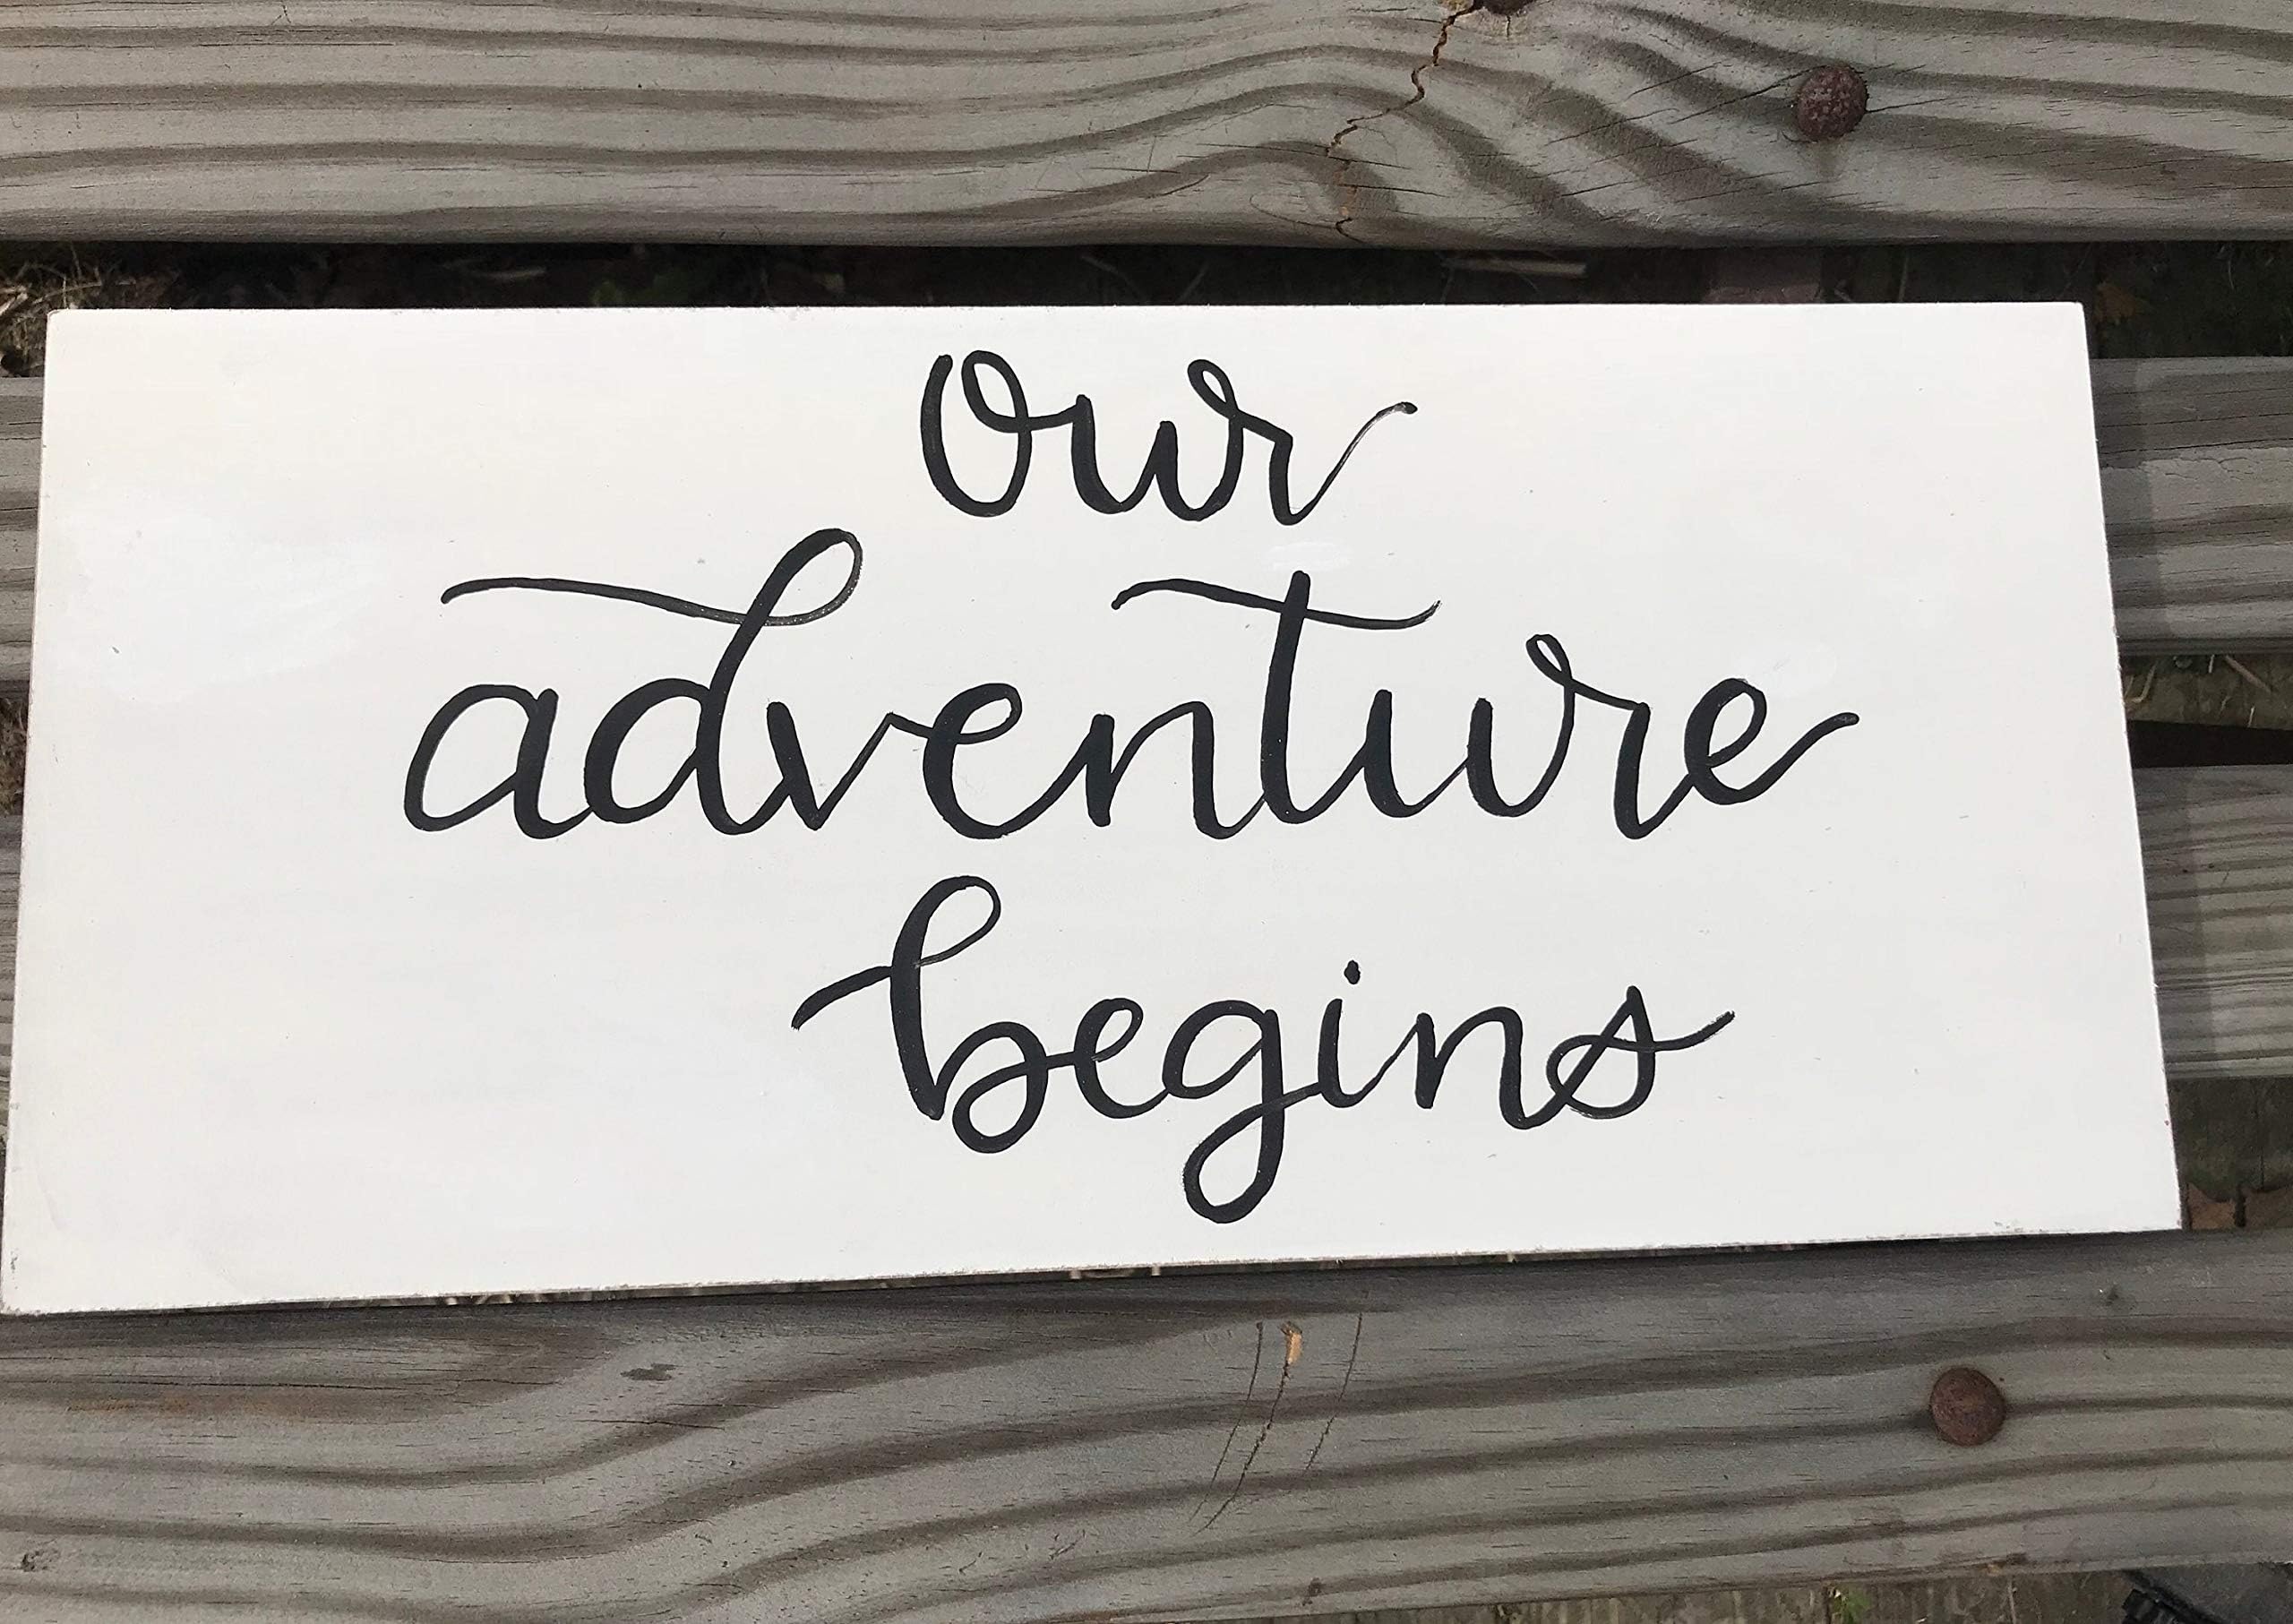 our
adventure
begins